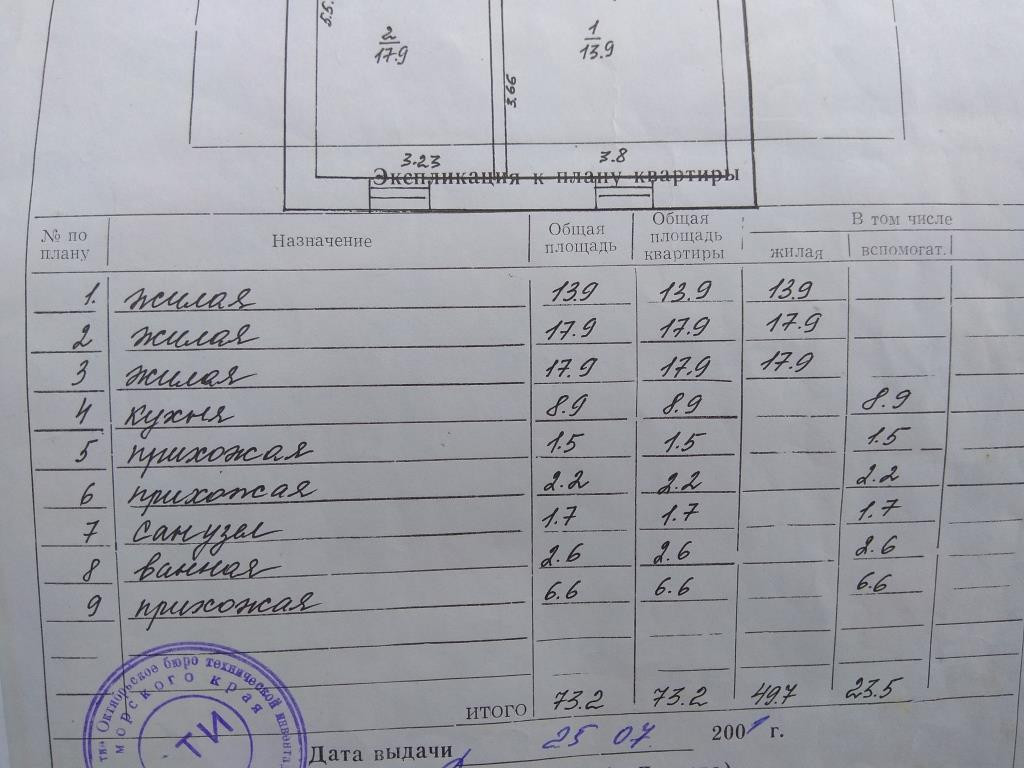 5.5
2
17.9
1
13.9
3.66
3.23
3.8
Экспликация к плану квартиры
№ по плану Назначение Общая площадь Общая площадь квартиры В том числе
жилая вспомогат.
1. жилая 13.9 13.9 13.9
2 жилая 17.9 17.9 17.9
3 жилая 17.9 17.9 17.9
4 кухня 8.9 8.9 8.9
5 прихожая 1.5 1.5 1.5
6 прихожая 2.2 2.2 2.2
7 санузел 1.7 1.7 1.7
8 ванная 2.6 2.6 2.6
9 прихожая 6.6 6.6 6.6
ИТОГО 73.2 73.2 49.7 23.5
Октябрьское бюро технической инвента
морского края
ТИ
Дата выдачи 25 07. 2001 г.